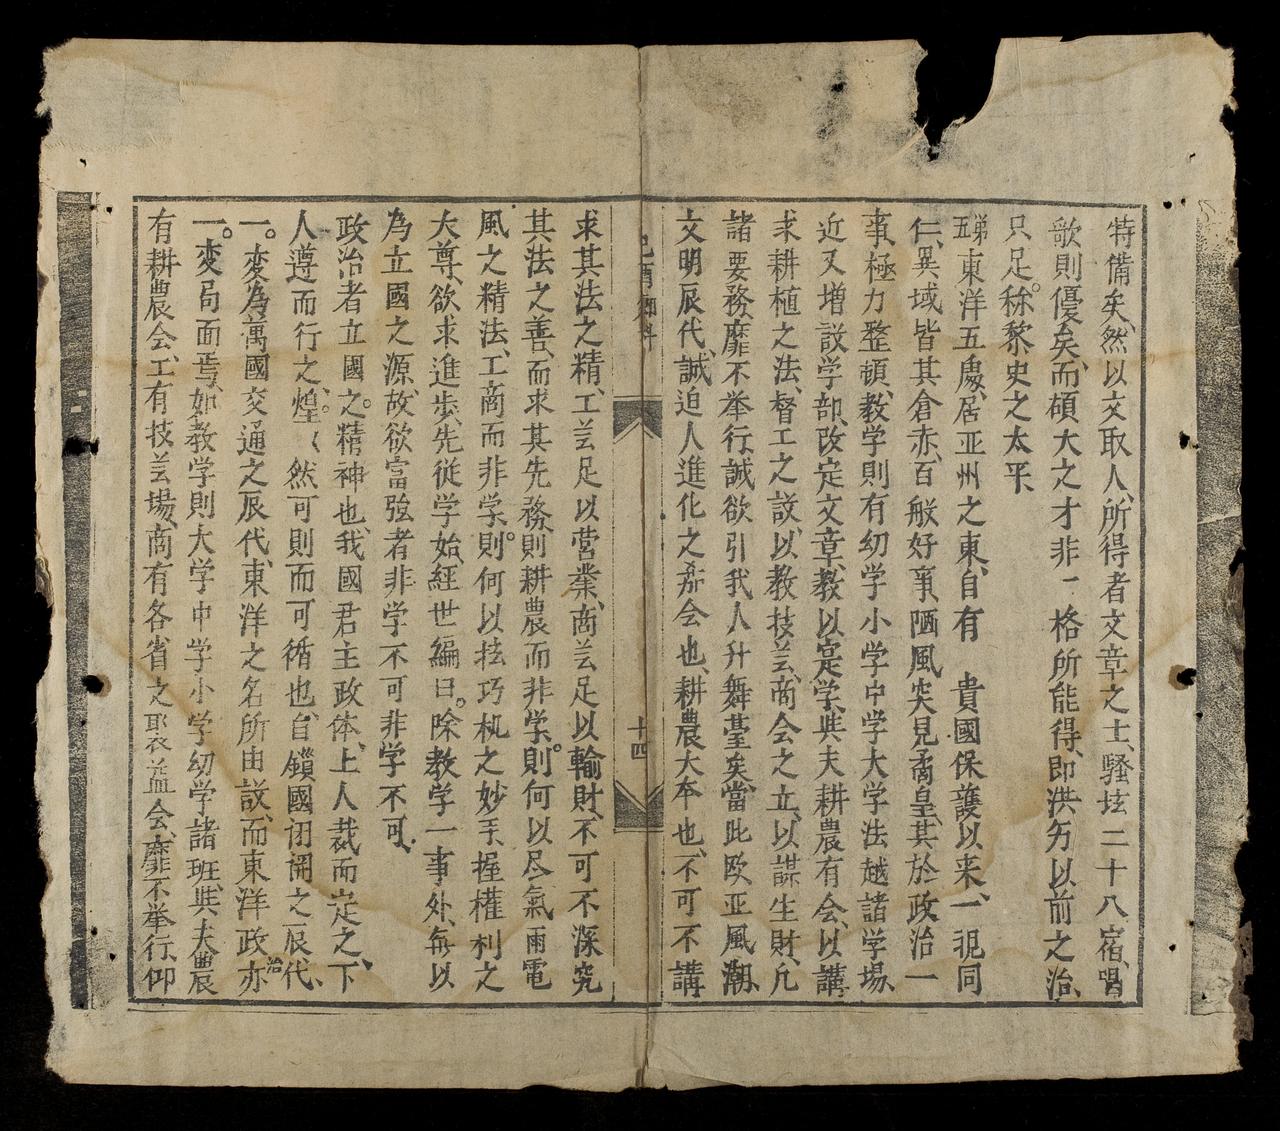 特備矣、然以文取人、所得者文章之士、騷坛二十八宿、唱
歌則優矣、而碩大之才非一格所能得、即洪匀以前之治、
只足。称黎史之太平、
苐東洋五處、居亚州之東、自有　貴國保護以来、一視同
仁、異域皆其倉赤、百般好事、陋風突見裔皇、其於政治一
事、極力整頓、教学則有幼学小学中学大学法越諸学場、
近又增設学部、改定文章、教以寔学、與夫耕農有会、以講
求耕植之法、督工之設、以教技芸、商会之立、以謀生財、凡
諸要務靡不举行、誠欲引我人升舞臺矣、當此欧亚風潮、
文明辰代、誠迫人進化之希会也、耕農大本也、不可不講
己酉鄉科
十四
求其法之精、工芸足以营業、商芸足以輸財、不可不深究
其法之善、而求其先務、則耕農而非学、則。何以尽氣雨電
風之精法、工商而非学、則。何以抾巧机之妙手、握權利之
大尊、欲求進步、先從学始、經世編曰。除教学一事外、每以
為立國之源、故欲富強者非学不可非学不可、
政治者立國之。精神也、我國君主政体、上人裁而定之、下
人遵而行之、煌。〻然可則而可循也、自鎖國闭關之辰代、
一。変為萬國交通之辰代、東洋之名所由設、而東洋政治亦
一。変局面焉、如教学則大学中学小学幼学諸班、與夫農
有耕農会、工有技芸場、商有各省之聚益会、靡不举行、仰